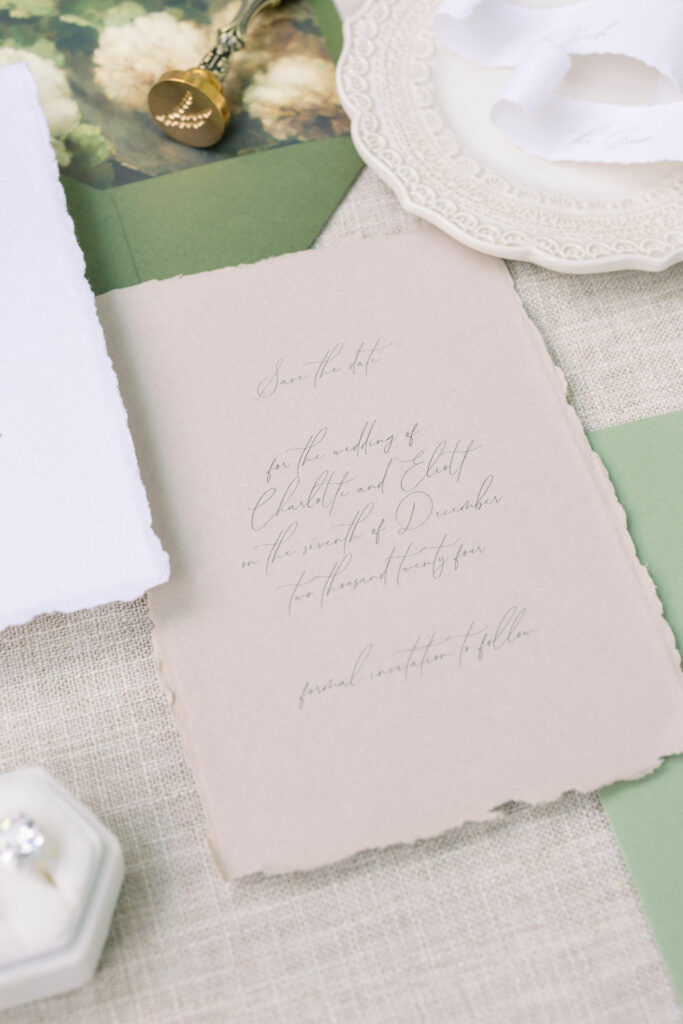 Save the date
for the wedding of
Charlotte and Eliott
on the seventh of December
two thousand twenty four
formal invitation to follow